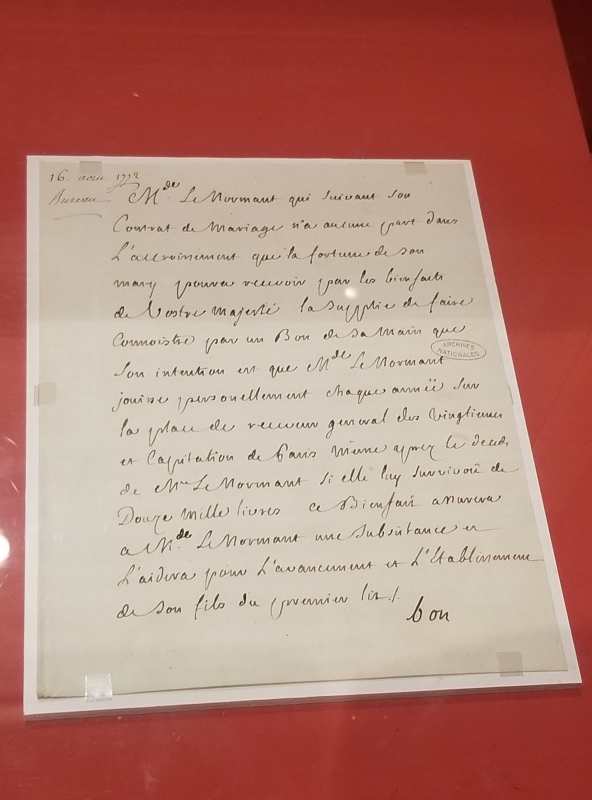 16. aout 1772
Bureau
Mde Le Normant qui suivant son
Contrat de Mariage n'a aucune part dans
L'accroissement que la fortune de son
mary poura recevoir par les bienfaits
de Vostre majesté la supplie de faire
Connoistre par un Bon de sa Main que
ARCHIVES
NATIONALES
Son intention est que Mde Le Normant
jouisse personellement chaque année sur
la place de receveur general des Vingtiemes
et Capitation de Paris meme aprez le deceds
de Mr Le Normant si elle luy survivoit de
Douze Mille livres ce Bienfait assurera
a Mde Le Normant une subsistance et
L'aidera pour L'avancement et L'Etablissement
de son fils du premier lit ./.
bon